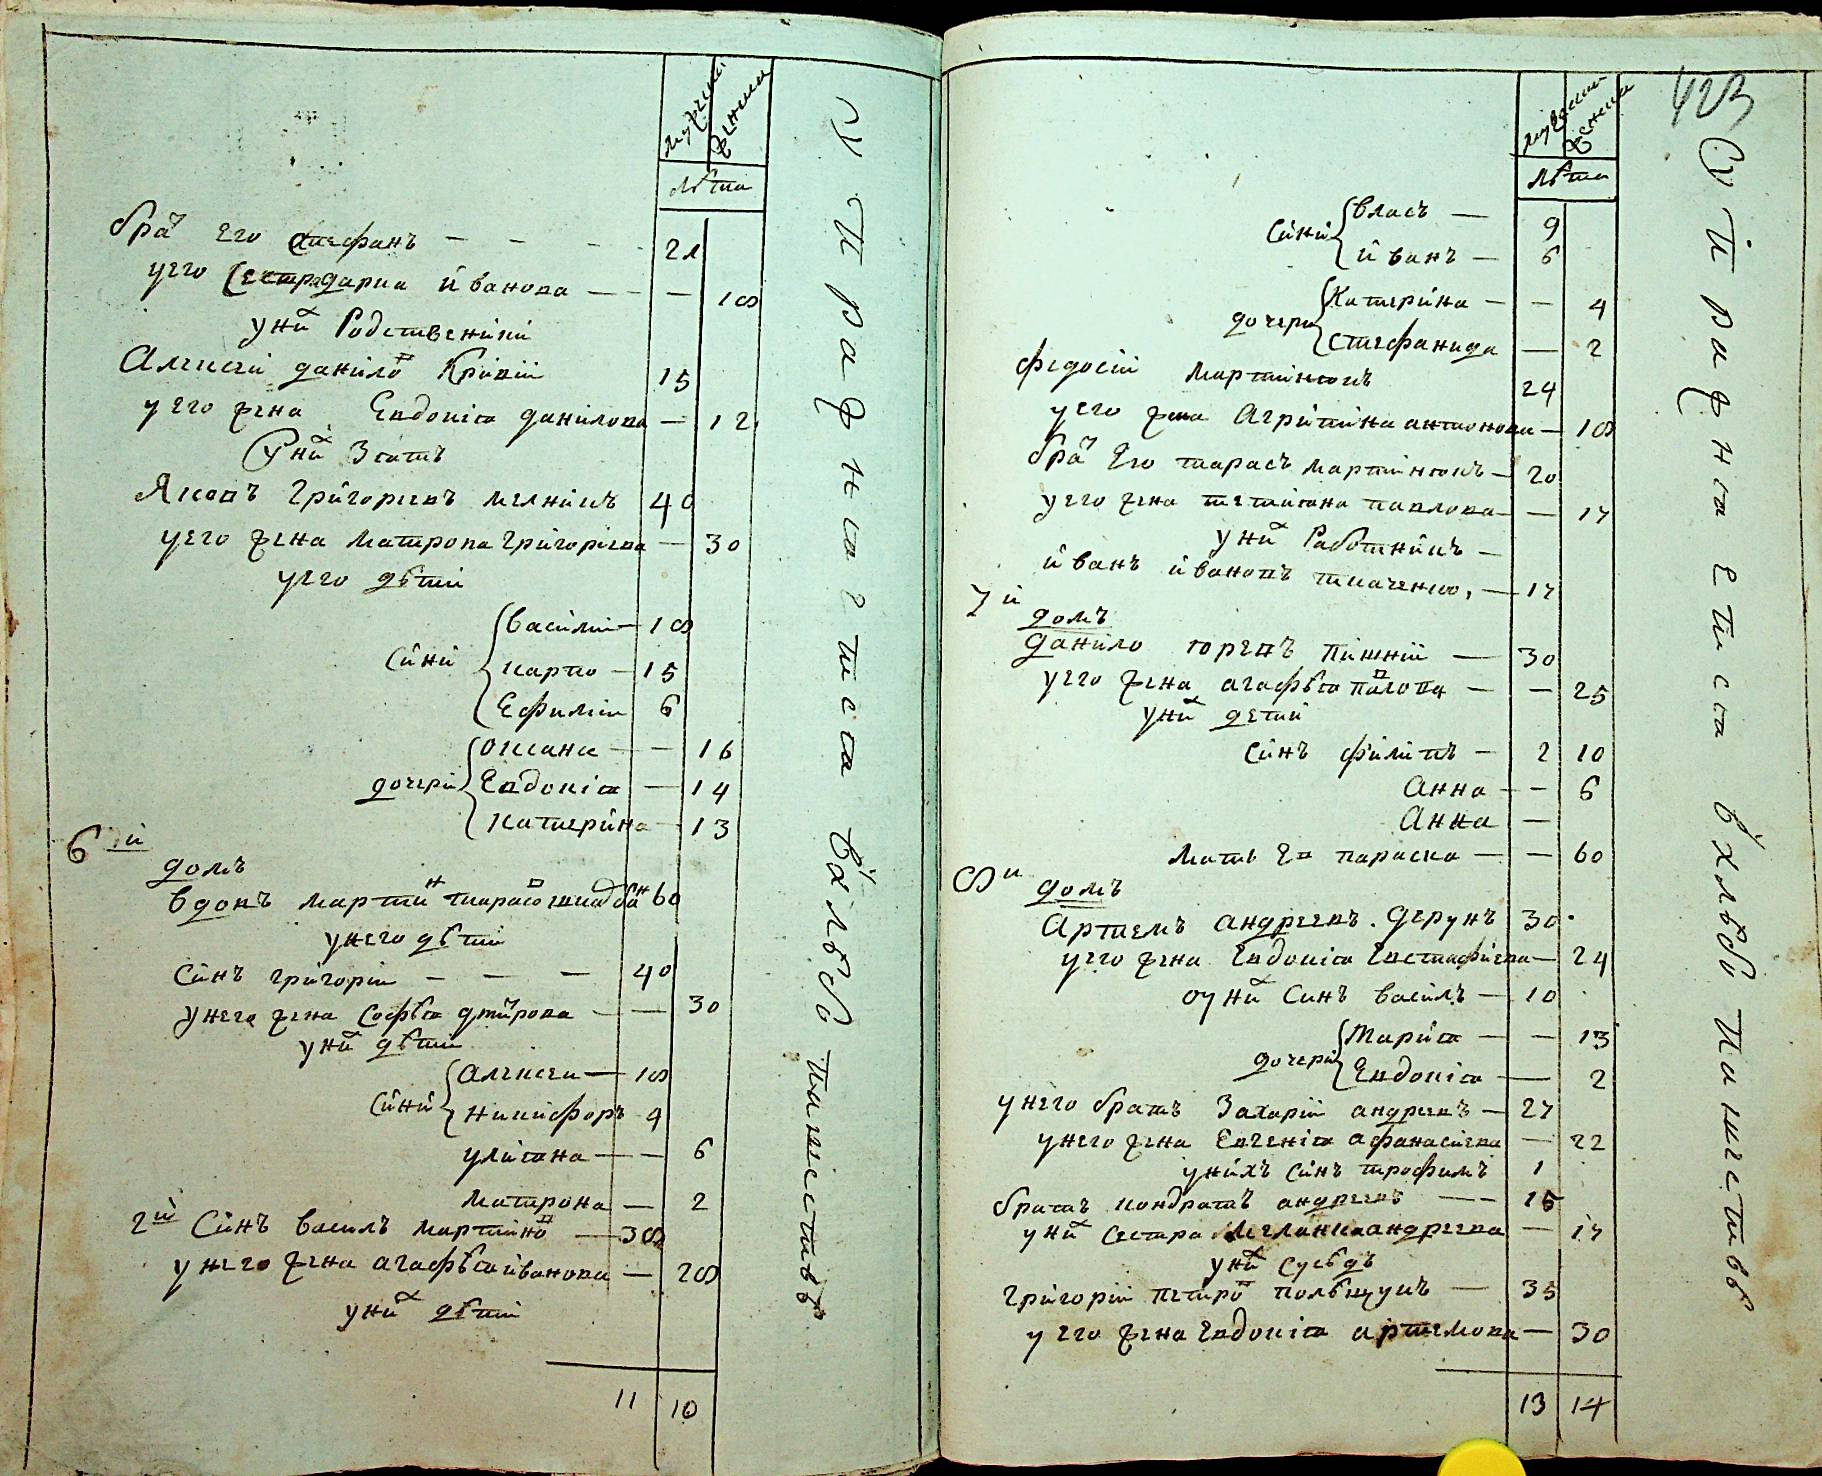 мужескъ женска
лѣта
бра т его стефанъ — — — 21
у его сестра дариа йванова — — — 18
у ни х родственики
Алексій данило в Кривій 15
у его жена Евдокіѧ данилова — 12
У ни х зѧть
Яковъ Григориевъ мелникъ 40
у его жена матрона григориева — 30
у его дѣти
сини василій — 18
карпо — 15
Ефимій 6
дочери оксана — — 16
Евдокіѧ — 14
катерина — 13
6 й
домъ
вдовъ марти н тарасо в 60
у него дѣти
синъ григорій — — — 40
у него жена софѣѧ дмитрова — — 30
у ни х дѣти
сини Алексеи — 18
никифоръ 4
улиѧна — — 6
матрона — 2
2 й Синъ василь мартино в — 38
у него жена агафѣѧ йванова — 28
у ни х дѣти
11 10
въ хлѣбопашествѣ
423
мужеска женска
лѣта
сини власъ — 9
йванъ — 6
дочери Катерина — — 4
стефанида — 2
федосій мартинюкъ 24
у его жена Агрипина антонова — 18
бра т его тарасъ мартинюкъ — 20
у его жена тетиѧна павлова — — 17
у ни х работникъ —
йванъ йвановъ ткаченко, — 17
7 й
домъ
данило пишній — 30
у его жена агафѣѧ — — 25
у ни х дети
синъ филипъ — 2 10
Анна — — 6
Анна —
мать его параска — — 60
8 й
домъ
Артемъ андреевъ дерунъ 30
у его жена Евдокіѧ Евстафіева — 24
оу ни х синъ василъ — 10
дочери Мариѧ — — 13
Евдокіѧ — 2
у него братъ Захарій андреевъ — 27
у него жена Евгеніѧ афанасиева — 22
у нихъ синъ трофимъ 1
братъ кондратъ андреевъ — — 15
у ни х сестра Меланка андреева — 17
у ни х сусѣдъ
григорій петро в — 35
у его жена Евдокіѧ артемова — 30
13 14
Упражнѧетсѧ въ хлѣбопашествѣ